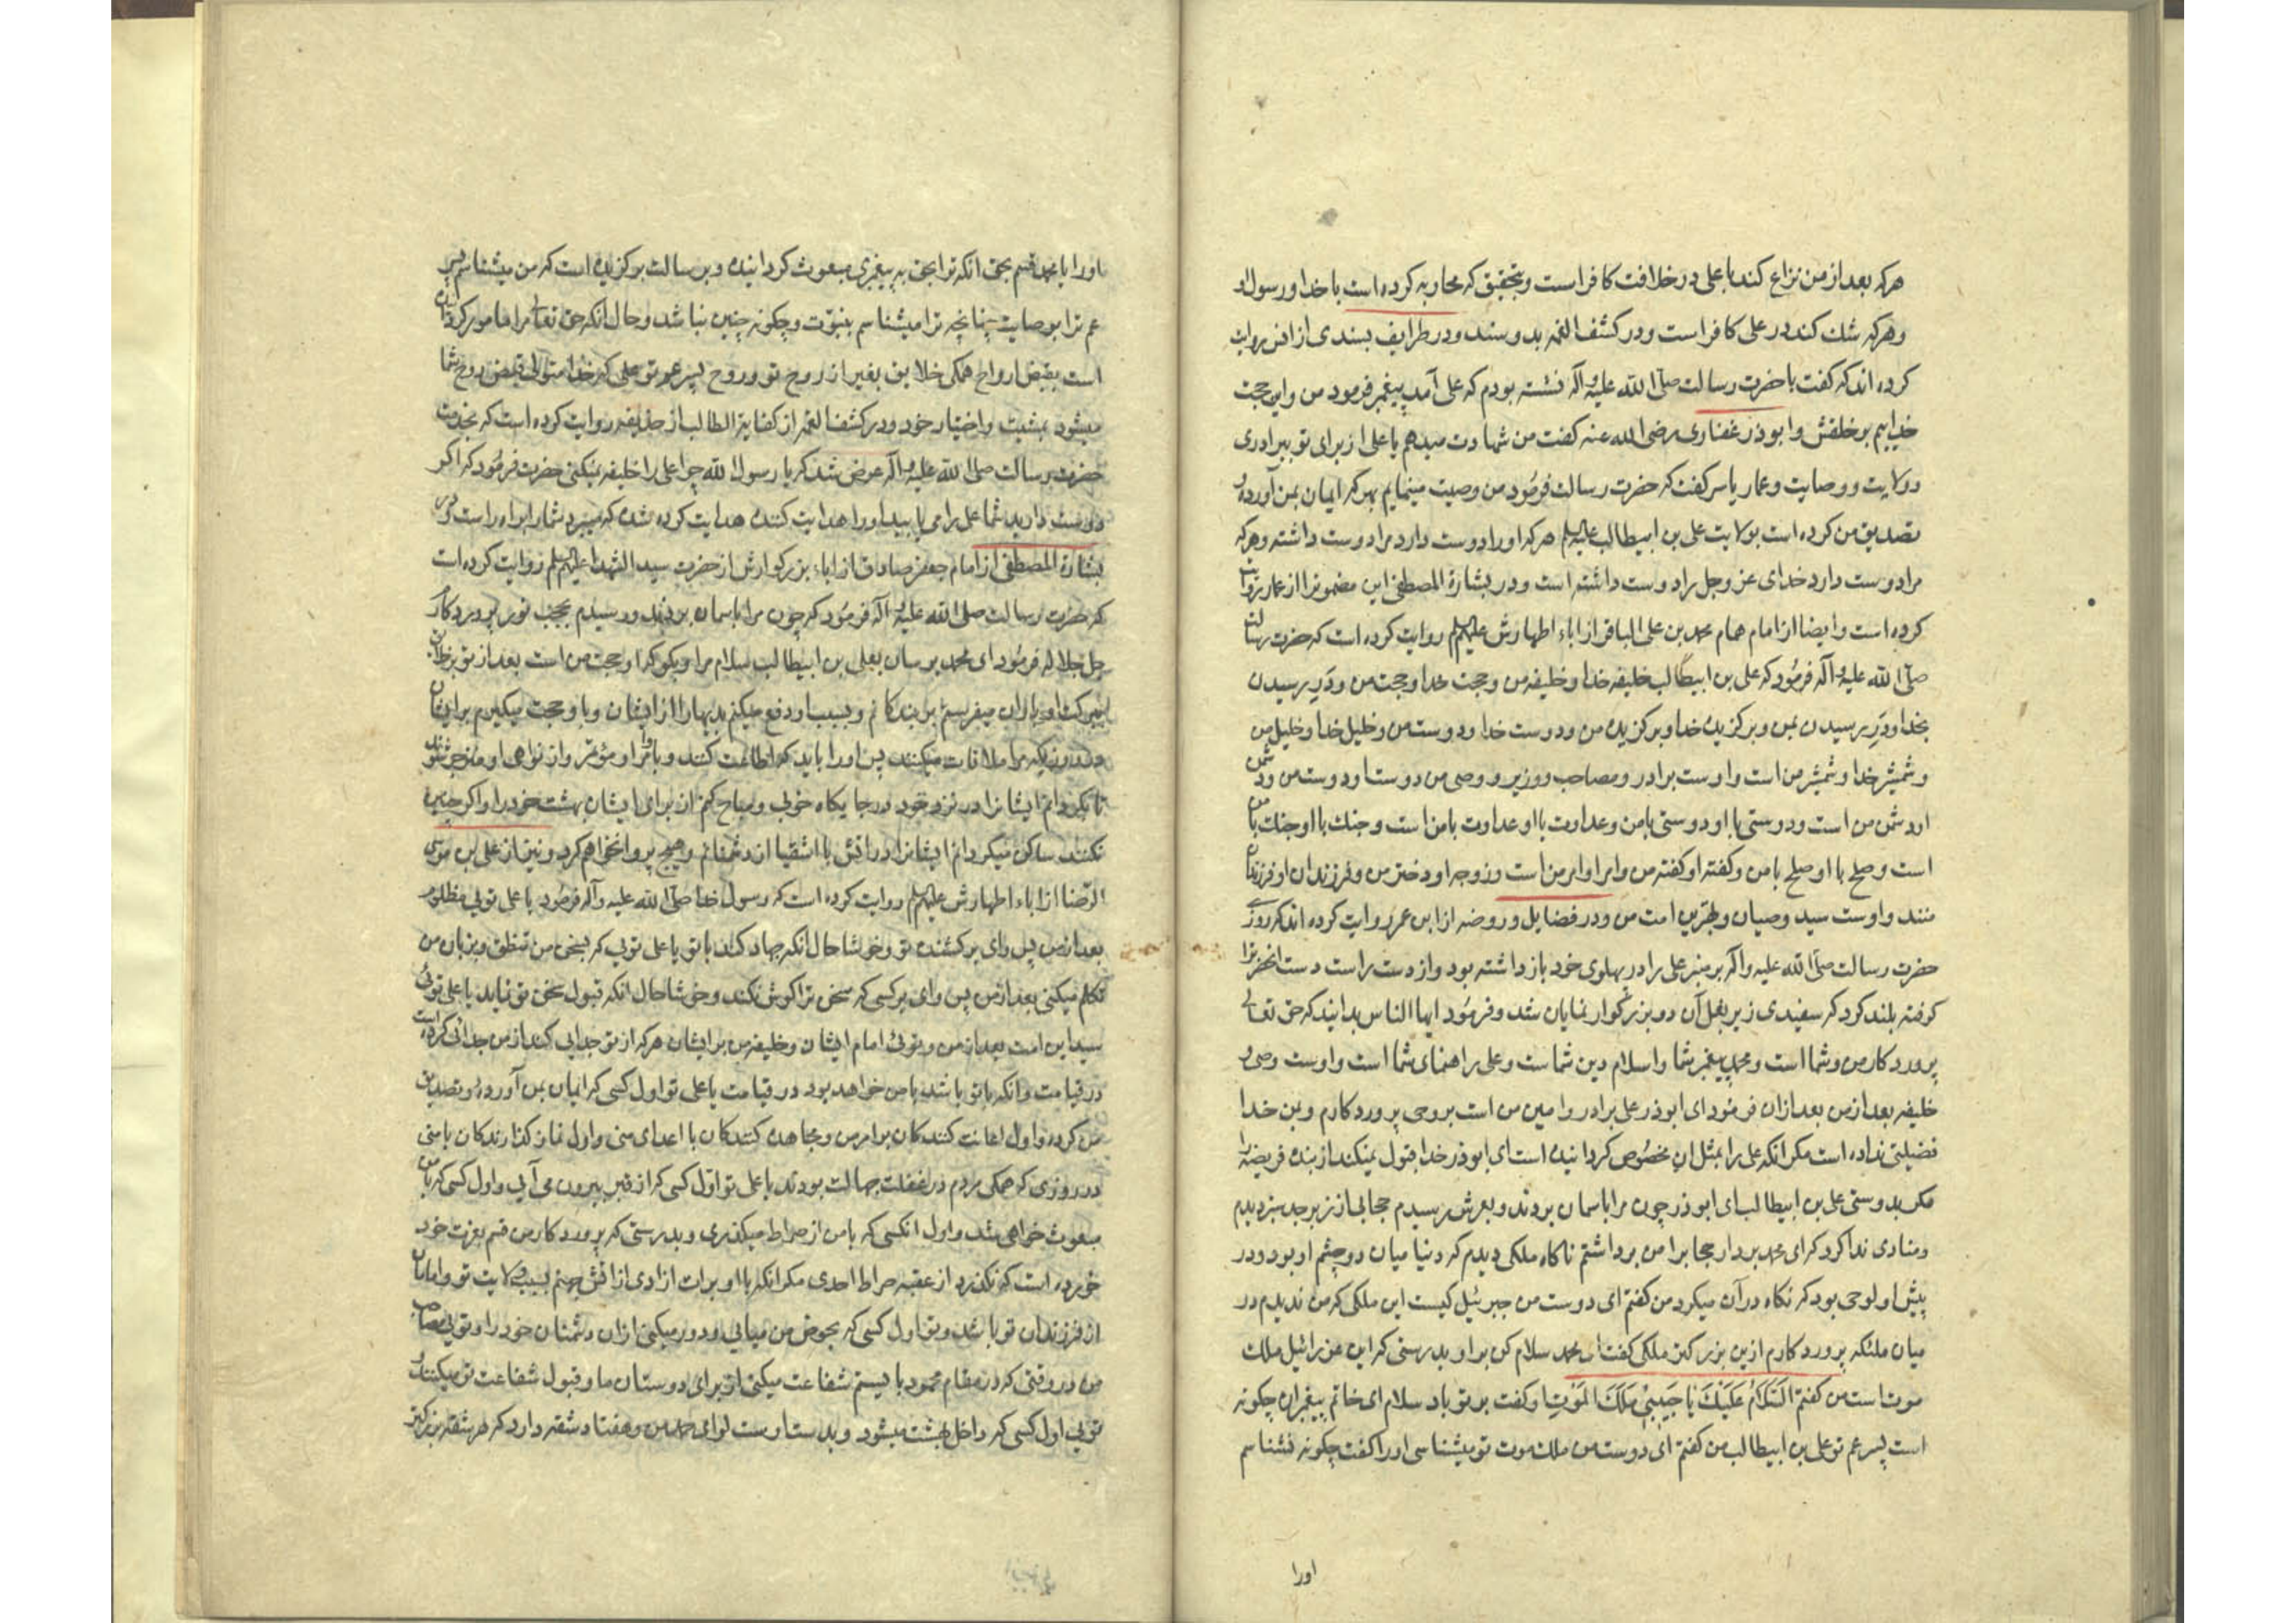 هرکه بعد از من نزاع کند با علی در خلافت کافر است و بتحقیق که محاربه کرده است با خدا و رسول او
و هرکه شك کند در علی کافر است و در کشف الغمه بدو سند و در طرایف بسندی از انس روایت
کرده اند که کفت با حضرت رسالت صلی الله علیه و آله نشسته بودم که علی آمد پیغمبر فرمود من و این حجت
خداییم بر خلقش و ابوذر غفاری رضی الله عنه کفت من شهادت میدهم یا علی از برای تو ببرادری
و ولایت و وصایت و عمار یاسر کفت که حضرت رسالت فرمود من وصیت مینمایم بهر که ایمان بمن آورده و
تصدیق من کرده است بولایت علی بن ابیطالب علیه السلم هرکه او را دوست دارد مرا دوست داشته و هرکه
مرا دوست دارد خدای عز و جل را دوست داشته است و در بشارة المصطفی این مضمونرا از عمار روایت
کرده است و ایضا از امام همام محمد بن علی الباقر از اباء اطهارش علیهم السلم روایت کرده است که حضرت رسالت
صلی الله علیه و آله فرمود که علی بن ابیطالب خلیفه خدا و خلیفه من و حجت خدا و حجت من و در رسیدن
بخدا و در رسیدن بمن و برکزیده خدا و برکزیده من و دوست خدا و دوست من و خلیل خدا و خلیل من
و شمشیر خدا و شمشیر من است و اوست برادر و مصاحب و وزیر و وصی من دوست او دوست من و دشمن
او دشمن من است و دوستی با او دوستی بامن و عداوت با او عداوت بامن است و جنك با او جنك با من
است و صلح با او صلح با من و کفته او کفته من و امر او امر من است و زوجه او دختر من و فرزندان او فرزندان
منند و اوست سید وصیان و بهترین امت من و در فضایل و روضه از ابن عمر روایت کرده اند که روزی
حضرت رسالت صلی الله علیه و آله بر منبر علی را در پهلوی خود باز داشته بود و از دست راست دست انحضرترا
کرفته بلند کرد که سفیدی زیر بغل آن دو بزرکوار نمایان شد و فرمود ایها الناس بدانید که حق تعالی
پروردکار من و شما است و محمد پیغمبر شما و اسلام دین شماست و علی راهنمای شما است و اوست وصی و
خلیفه بعد از من بعد از ان فرمود ای ابوذر علی برادر و امین من است بر وحی پروردکارم و بمن خدا
فضیلتی نداده است مکر انکه علی را بمثل ان مخصوص کردانیده است ای ابوذر خدا قبول نمیکند از بنده فریضه را
مکر بدوستی علی بن ابیطالب ای ابوذر چون مرا باسمان بردند و بعرش رسیدم حجابی از زبرجد سبز دیدم
و منادی ندا کرد که ای محمد بردار حجابرا من برداشتم ناکاه ملکی دیدم که دنیا میان دو چشم او بود و در
پیش او لوحی بود که نکاه در آن میکرد من کفتم ای دوست من جبرئیل کیست این ملکی که من ندیدم در
میان ملئکه پروردکارم ازین بزرکتر ملکی کفت ای محمد سلام کن بر او بدرستی که این عزرائیل ملك
موت است من کفتم السَّلَامُ عَلَيْكَ يَا حَبِيبِي مَلَكَ الْمَوْتِ او کفت بر تو باد سلام ای خاتم پیغمبران چکونه
است پسر عم تو علی بن ابیطالب من کفتم ای دوست من ملك موت تو میشناسی او را کفت چکونه نشناسم
اورا
او را یا محمد قسم بحق انکه ترا بحق به پیغمبری مبعوث کردانیده و برسالت برکزیده است که من میشناسم پسر
عم ترا بوصایت چنانچه ترا میشناسم بنبوت و چکونه چنین نباشد و حال انکه حق تعالی مرا مامور کردانیده
است بقبض ارواح همکی خلایق بغیر از روح تو و روح پسر عم تو علی که خدا متولی قبض روح شما
میشود بمشیت و اختیار خود و در کشف الغمه از کفایة الطالب از حذیفه روایت کرده است که بخدمت
حضرت رسالت صلی الله علیه و آله عرض شد که یا رسول الله چرا علی را خلیفه نمیکنی حضرت فرمود که اکر
دوست دارید شما علی را می یابید او را هدایت کننده هدایت کرده شده که میبرد شما را براه راست و در
بشارة المصطفی از امام جعفر صادق از اباء بزرکوارش از حضرت سید الشهدا علیهم السلم روایت کرده است
که حضرت رسالت صلی الله علیه و آله فرمود که چون مرا باسمان بردند و رسیدم بحجب نور پروردکار
جل جلاله فرمود ای محمد برسان بعلی بن ابیطالب سلام مرا و بکو که او حجت من است بعد از تو بر خلق
ببرکت او باران میفرستم بر بندکانم و بسبب او دفع میکنم بدیها را از ایشان و باو حجت میکیرم بر ایشان
در روزیکه مرا ملاقات میکنند پس او را باید که اطاعت کنند و باوامر او مؤتمر و از نواهی او منزجر شوند
تا بکردانم ایشانرا در نزد خود در جایکاه خوبی و مباح کنم از برای ایشان بهشت خود را و اکر چنین
نکنند ساکن میکردانم ایشانرا در اتش با اشقیا از دشمنانم و هیچ پروا نخواهم کرد و نیز از علی بن موسی
الرضا از اباء اطهارش علیهم السلم روایت کرده است که رسول خدا صلی الله علیه و آله فرمود یا علی تویی مظلوم
بعد از من پس وای بر کشنده تو و خوشا حال انکه جهاد کند با تو یا علی تویی که بسخن من تنطق و بزبان من
تکلم میکنی بعد از من پس وای بر کسی که سخن ترا کوش نکند و خوشا حال انکه قبول سخن تو نماید یا علی تویی
سید این امت بعد از من و تویی امام ایشان و خلیفه من بر ایشان هرکه از تو جدایی کند از من جدائی کرده است
در قیامت و انکه با تو باشد با من خواهد بود در قیامت یا علی تو اول کسی که ایمان بمن آورده و تصدیق
من کرده و اول اعانت کنندکان بر امر من و مجاهده کنندکان با اعدای منی و اول نماز کذارندکان بامنی
در روزی که همکی مردم در غفلت جهالت بودند یا علی تو اول کسی که از قبر بیرون می آیی و اول کسی که با من
مبعوث خواهی شد و اول انکسی که با من از صراط میکذری و بدرستی که پروردکار من قسم بعزت خود
خورده است که نکذرد از عقبه صراط احدی مکر انکه با او برات ازادی از اتش جهنم بسبب ولایت تو و امامان
از فرزندان تو باشد و تو اول کسی که بحوض من میایی و دور میکنی از ان دشمنان خود را و تویی مصاحب
من در وقتی که در مقام محمود بایستم شفاعت میکنی از برای دوستان ما و قبول شفاعت تو میکنند و
تویی اول کسی که داخل بهشت میشود و بدست اوست لوای حمد من و هفتاد شقه دارد که هر شقه بزرکتر